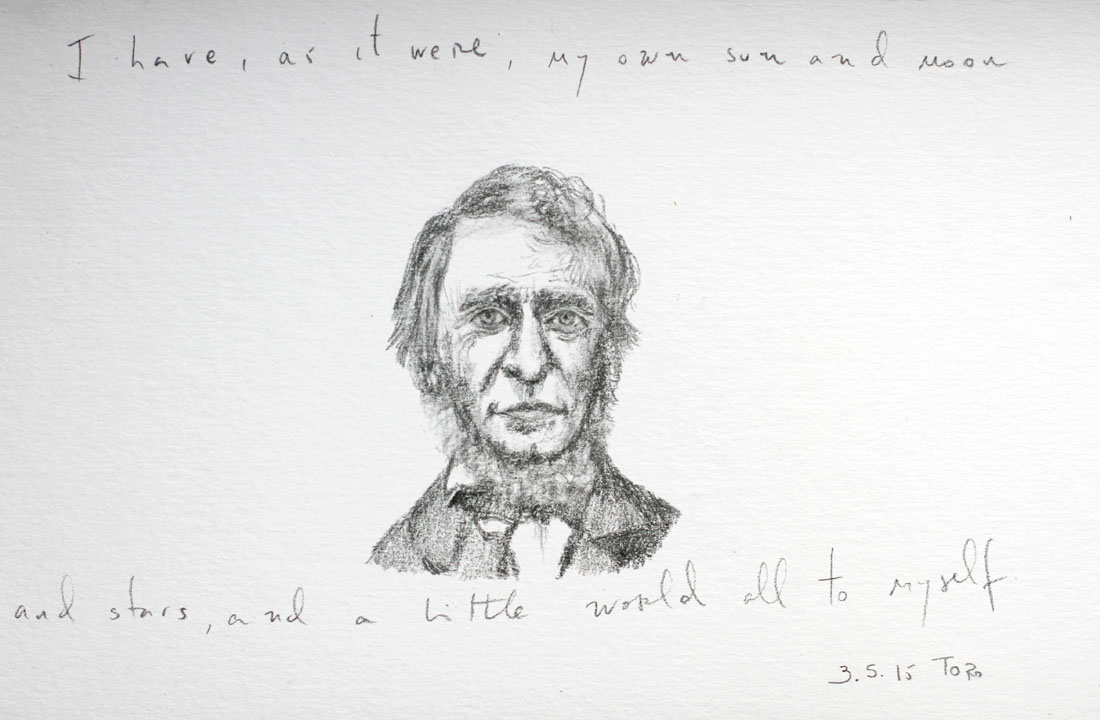 I have, as it were, my own sun and moon
and stars, and a little world all to myself.
3.5.15 TORO